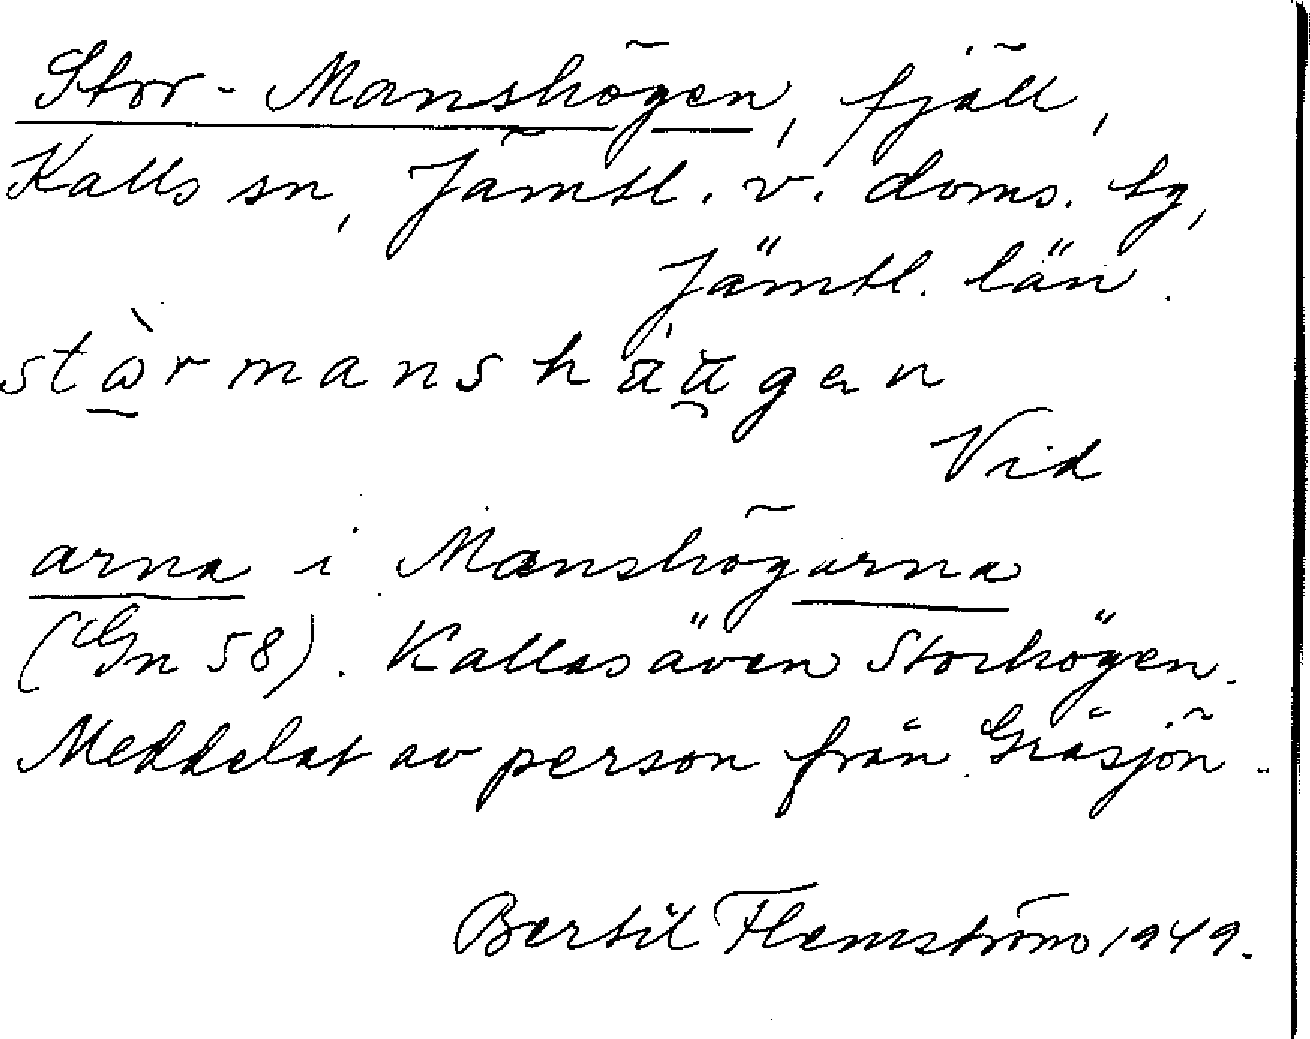 Stor-Manshögen, fjäll,
Kalls sn, Jämtl. v. doms. tg,
Jämtl. län.
stɷ̀rmanshäu̯gen
Vid
arna i Manshögarna
(Gn 58). Kallas även Storhögen.
Meddelat av person från Gråsjön.
Bertil Flemström 1949.